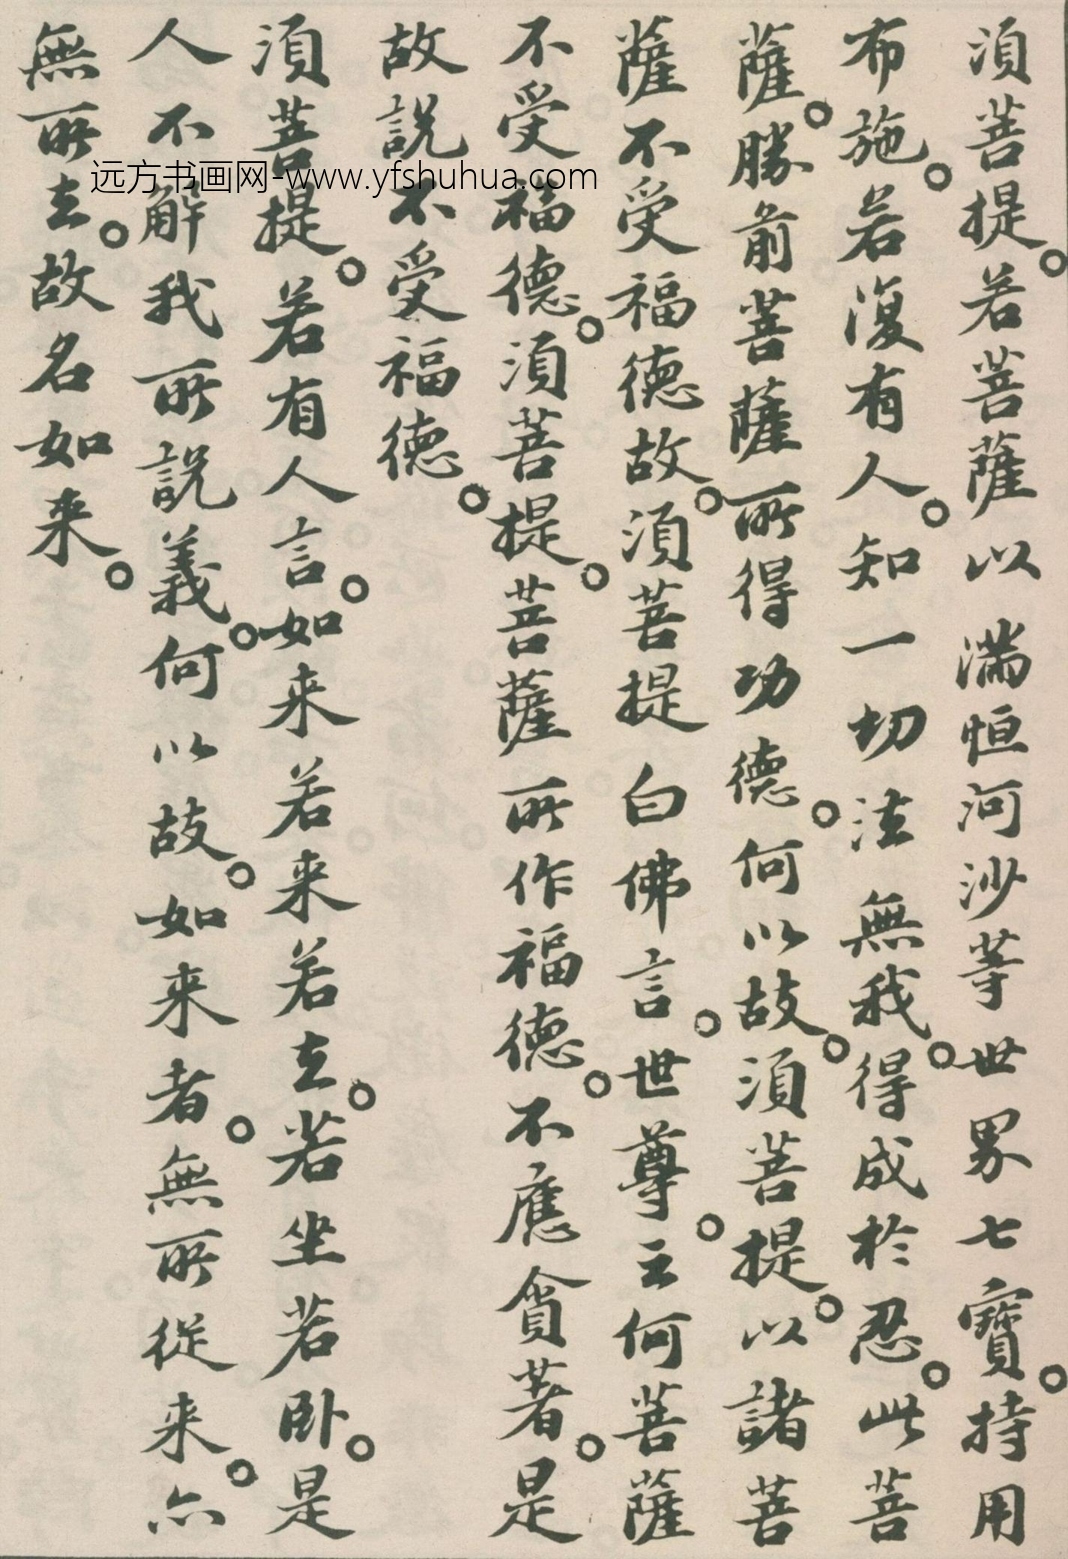 須菩提。若菩薩以滿恒河沙等世界七寶。持用
布施。若復有人。知一切法無我。得成於忍。此菩
薩。勝前菩薩所得功德。何以故。須菩提。以諸菩
薩不受福德故。須菩提白佛言。世尊。云何菩薩
不受福德。須菩提。菩薩所作福德。不應貪著。是
故說不受福德。
須菩提。若有人言。如来若来若去。若坐若卧。是
人不解我所說義。何以故。如来者。無所從来。亦
無所去。故名如来。
远方书画网-www.yfshuhua.com